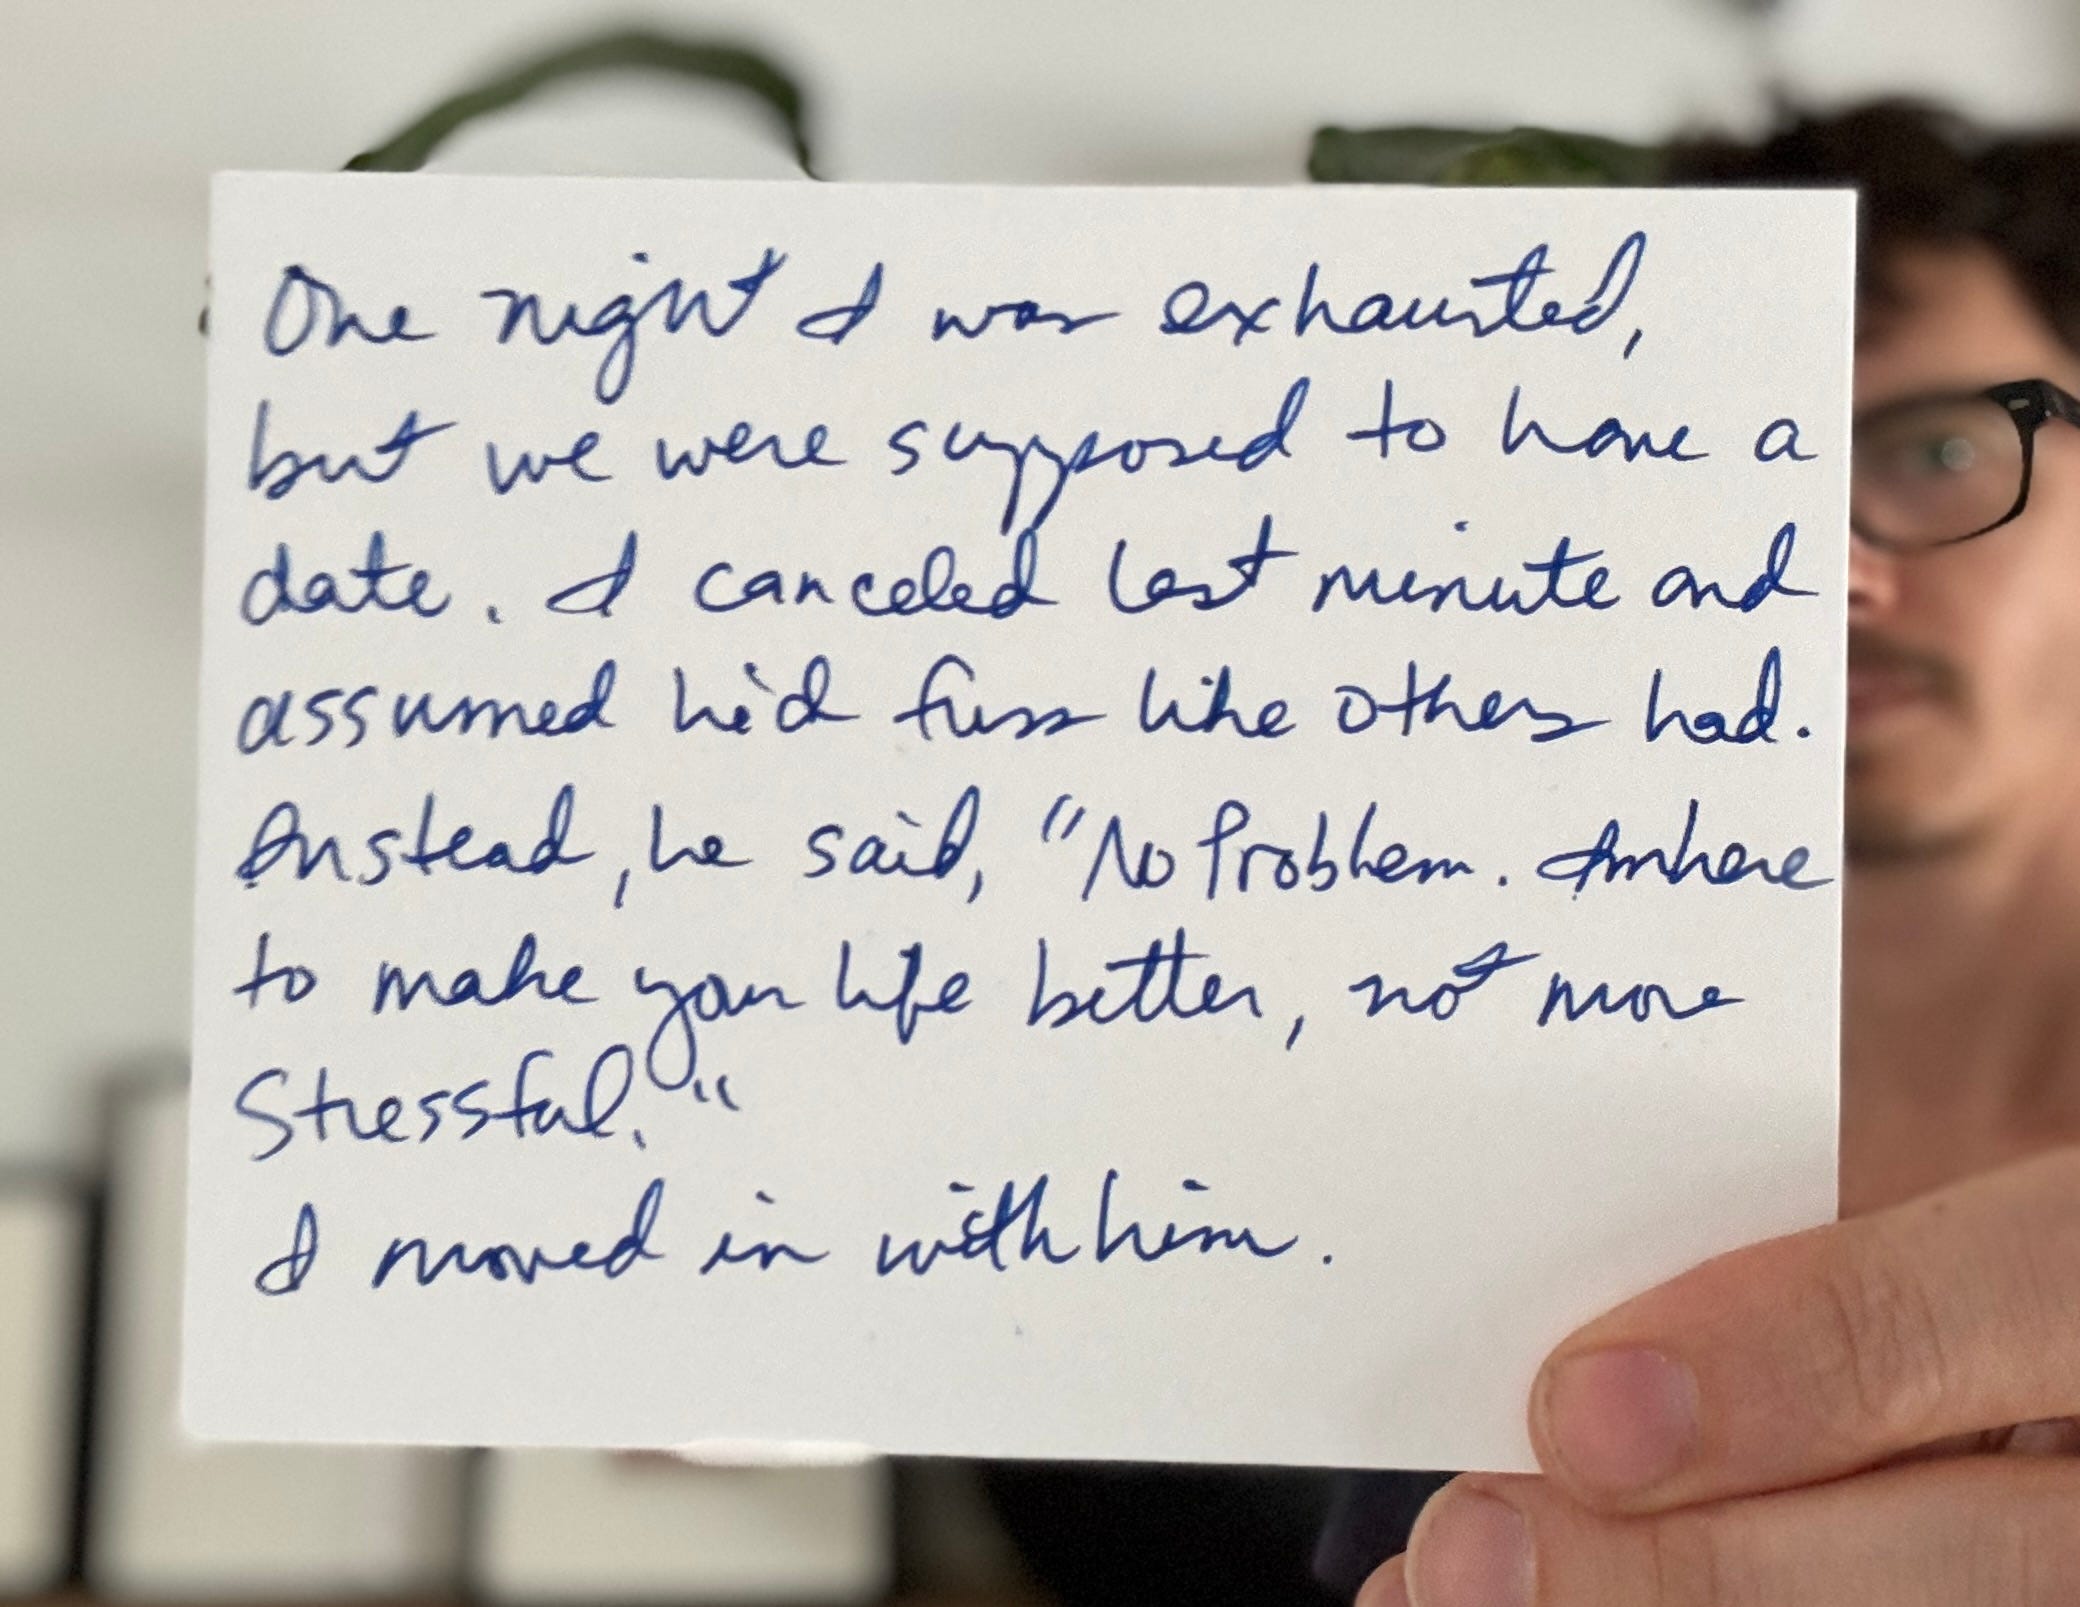 One night I was exhausted,
but we were supposed to have a
date. I canceled last minute and
assumed he'd fuss like others had.
Instead, he said, "No Problem. I'm here
to make your life better, not more
Stressful."
I moved in with him.